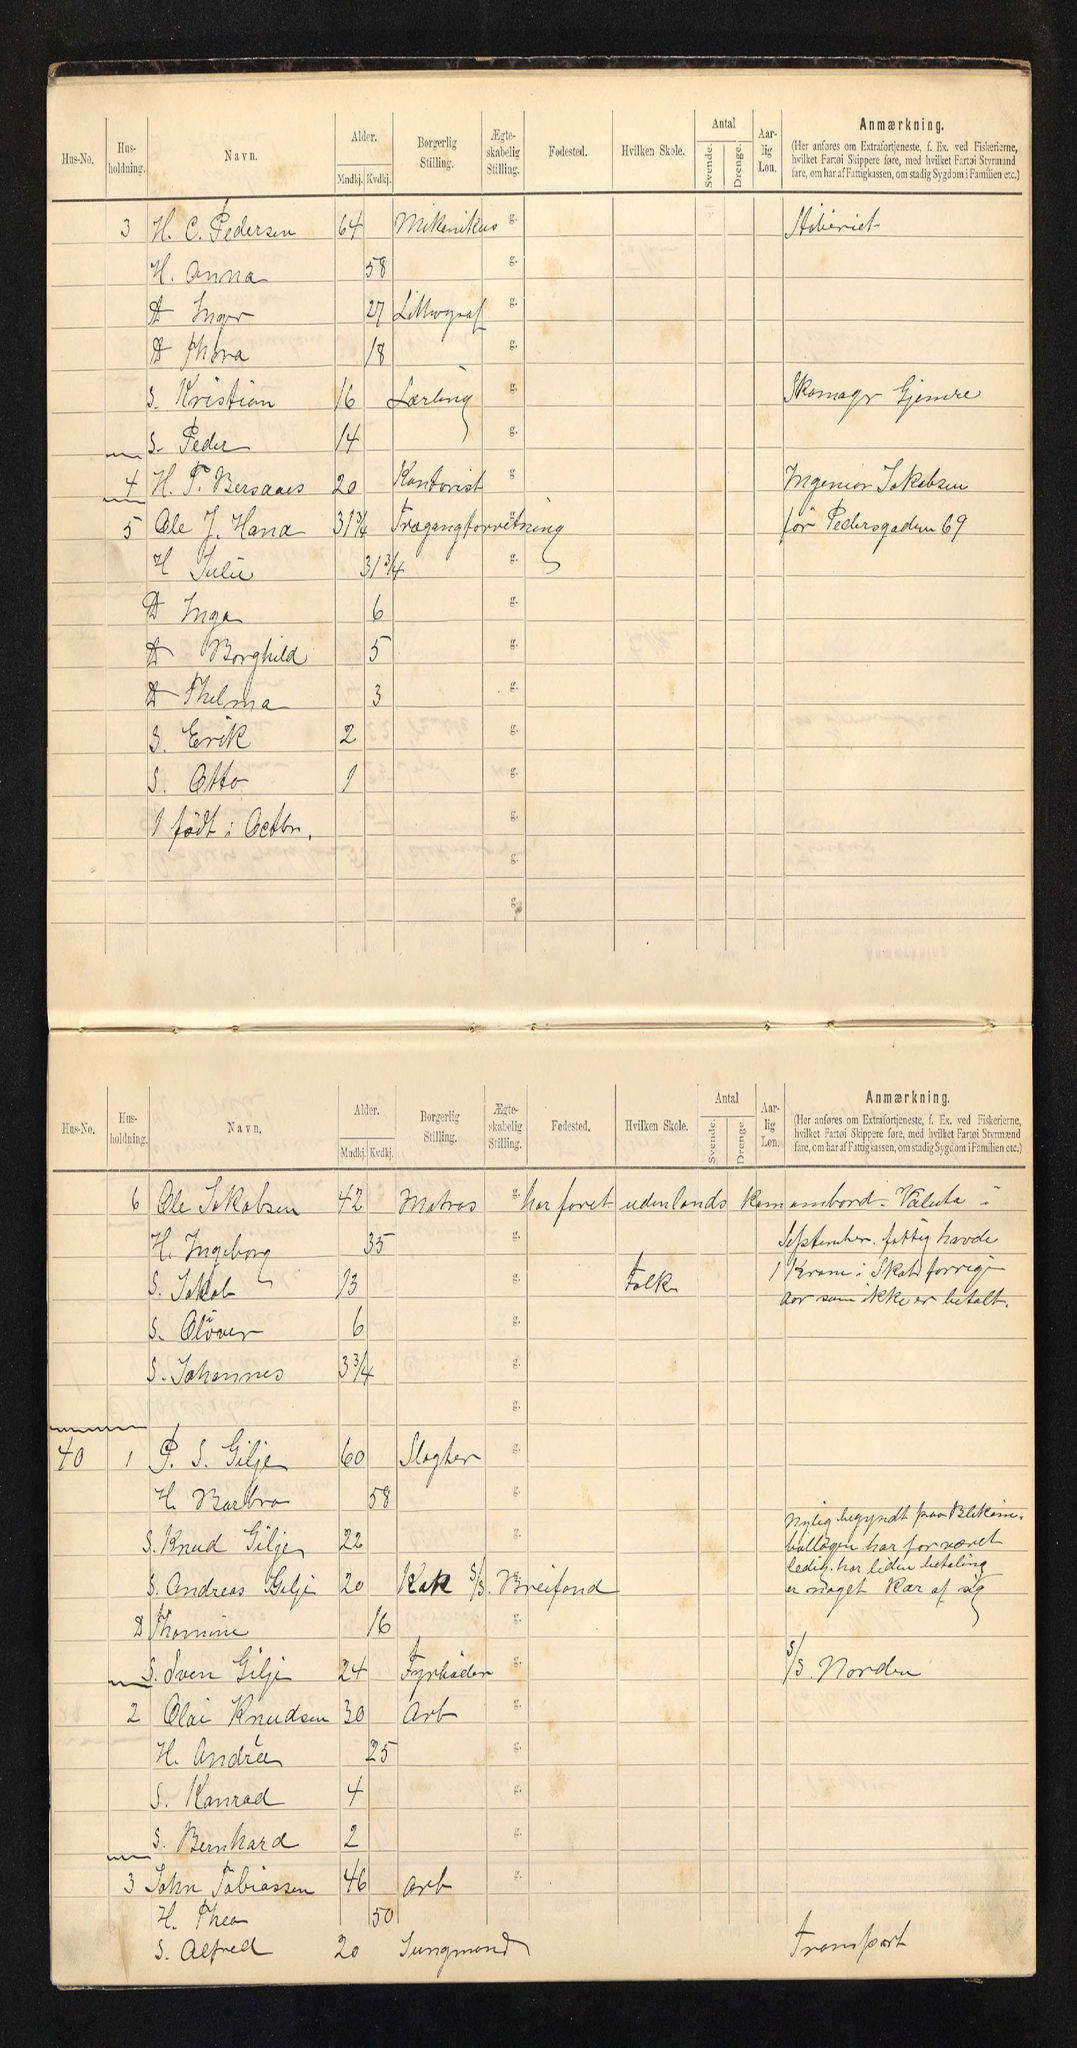 Hus-No. Hus-holdning. Navn. Alder. Mndkj. Kvdkj. Borgerlig Stilling. Ægte-skabelig Stilling. Fødested. Hvilken Skole. Antal Svende. Drenge. Aar-lig Løn. Anmærkning.
(Her anføres om Extrafortjeneste, f. Ex. ved Fiskerierne,
hvilket Fartøi Skippere føre, med hvilket Fartøi Styrmænd
fare, om har af Fattigkassen, om stadig Sygdom i Familien etc.)
3 H. C. Pedersen 64 Mikanikus g. Støberiet
H. Anna 58 g.
D Inger 27 Lithograf g.
D Thora 18 g.
S. Kristian 16 Lærling g. Skomager Gjemre
S. Peder 14 g.
4 H. T. Bersaaes 20 Kontorist g. Ingeniør Jakobsen
5 Ole J. Hana 31 3/4 Fragangforretning g. før Pedersgaden 69
H Julie 31 3/4 g.
D Inga 6 g.
D Borghild 5 g.
D Thelma 3 g.
S. Erik 2 g.
S. Otto 1 g.
1 født i Octbr. g.
g.
g.
Hus-No. Hus-holdning. Navn. Alder. Mndkj. Kvdkj. Borgerlig Stilling. Ægte-skabelig Stilling. Fødested. Hvilken Skole. Antal Svende. Drenge. Aar-lig Løn. Anmærkning.
(Her anføres om Extrafortjeneste, f. Ex. ved Fiskerierne,
hvilket Fartøi Skippere føre, med hvilket Fartøi Styrmænd
fare, om har af Fattigkassen, om stadig Sygdom i Familien etc.)
6 Ole Jakobsen 42 Matros g. har faret udenlands kom ombord i Valuta i
H. Ingeborg 35 g. September. fattig havde
S. Jakob 13 g. Folk 1 Krone i Skat forrige
aar som ikke er betalt.
S. Oliver 6 g.
S. Johannes 3 3/4 g.
g.
40 1 P. S. Gilje 60 Slagter g.
H. Barbro 58 g.
Nylig begyndt paa Blikem-
S. Knud Gilje 22 g. ballagen har før været
ledig. har liden betaling
S. Andreas Gilje 20 Kok S/S. Breifond g. er noget Kar af sig
D Thomine 16 g.
S. Sven Gilje 24 Fyrbøder g. S/S. Norden
2 Olai Knudsen 30 Arb g.
H. Andrea 25 g.
S. Konrad 4 g.
S. Bernhard 2 g.
3 John Tobiassen 46 Arb g.
H. Thea 50
S. Alfred 20 Jungmand Transport